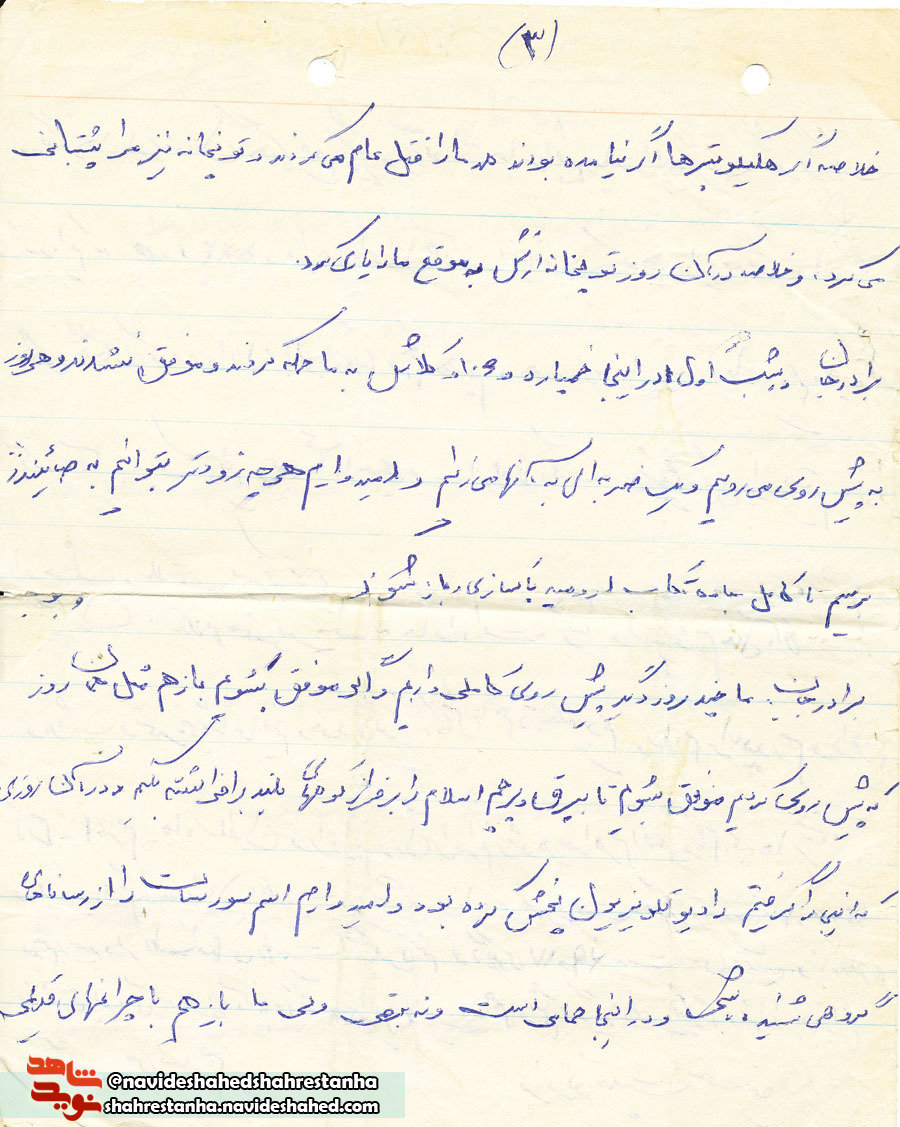 (۳)
خلاصه اگر هلیکوپترها اگر نیامده بودند همه ما را قتل عام می کردند و توپخانه نیز ما را پشتیبانی
می کرد. و خلاصه در آن روز توپخانه ارتش به موقع ما را یاری کرد.
برادر جان دیشب اول در اینجا خمپاره و کلاش به ما حمله کردند و موفق نشدند و هر روز
به پیش روی می رویم و یک ضربه ای به آنها می زنیم و امیدواریم هر چه زودتر بتوانیم به صائیندژ
برسیم تا کامل جاده تکاب ارومیه پاکسازی و باز شود
برادر جان ما چند روز دیگر پیش روی کاملی داریم و اگر موفق بشویم باز هم مثل همان روز
که پیش روی کردیم موفق بشویم تا بیرق و پرچم اسلام را بر فراز کوههای بلند برافراشته کنیم و در آن روزی
که اینجا را گرفتیم رادیو تلویزیون پخش کرده بود و امیدوارم اسم سورسات را از رسانه های
گروهی شنیده باشی و در اینجا حمامی است و نه برقی ولی ما باز هم با چراغهای قدیمی
شاهد
نوید
@navideshahedshahrestanha
shahrestanha.navideshahed.com